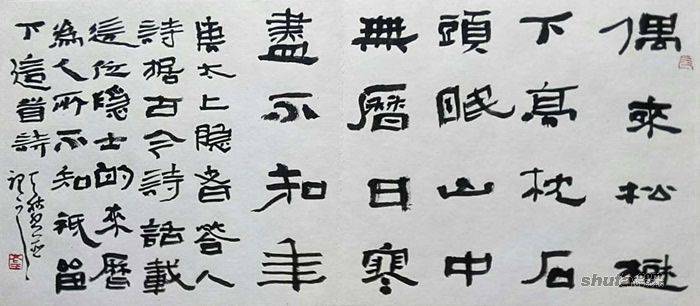 偶來松樹
下高枕石
頭眠山中
無曆日寒
盡不知年
唐太上隐者答人
詩据古今詩話載
這位隐士的來曆
為人所不知祇留
下這首詩